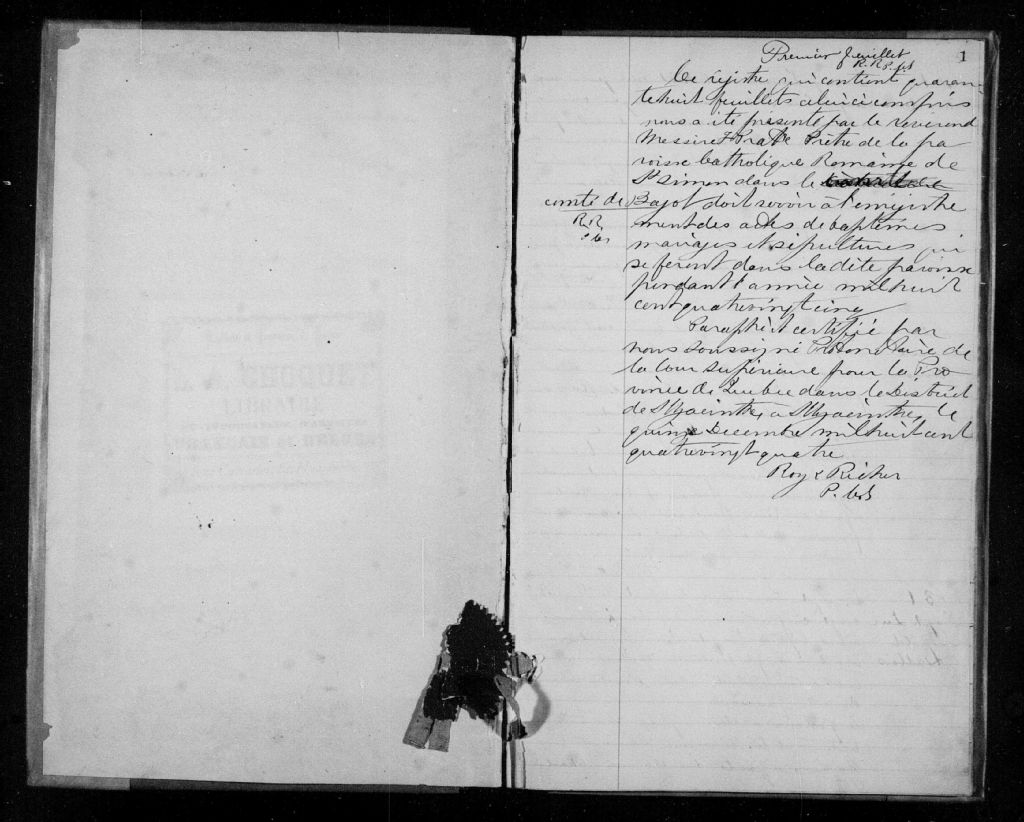 1
Premier feuillet
R. R. P.C.S
Ce rejistre qui contient quaran-
te huit feuillets celui ci compris
nous a été présenté par le révérend
Messire Prêtre de la pa
roisse Catholique Romaine de
St Simon dans le
comté de Bagot doit servir à l'enrejistre
R. R.
P.C.S
ment des actes de baptêmes
mariages et sépultures qui
se feront dans la dite paroisse
pendant l'année mil huit
cent quatrevingt cinq
Paraphé et certifié par
nous soussigné Protonotaire de
la Cour Supérieure pour la Pro
vince de Quebec dans le District
de St Hyacinthe, à St Hyacinthe, le
quinze Decembre mil huit cent
quatrevingt quatre
Roy & Richer
P.C.S